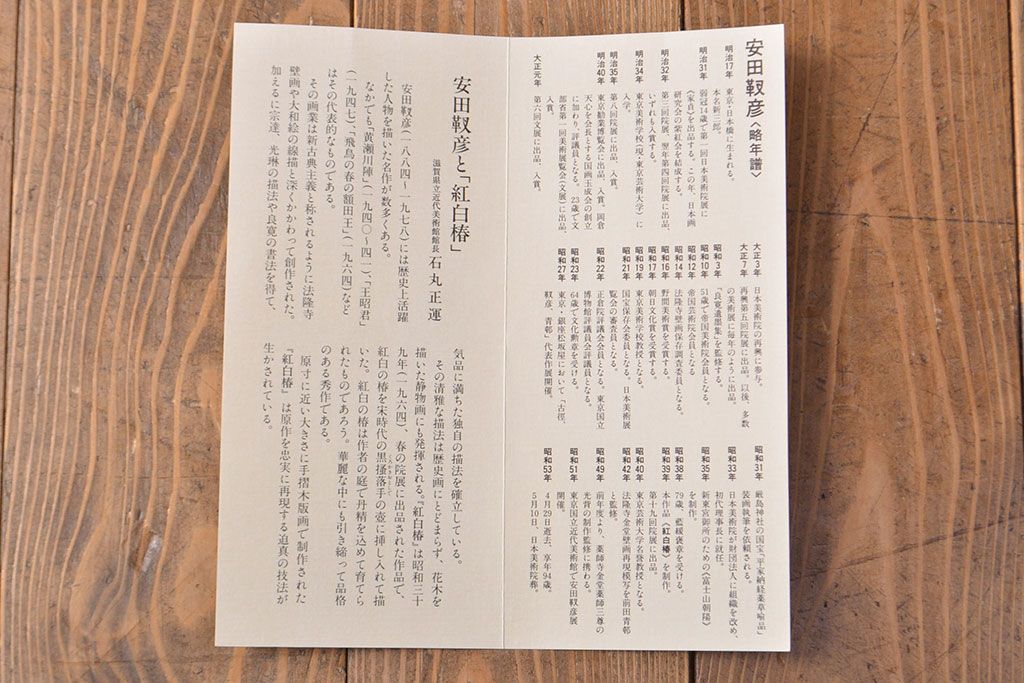 安田靫彦〈略年譜〉
明治17年 東京・日本橋に生まれる。
本名新三郎。
明治31年 弱冠14歳で第一回日本美術院展に
《家貞》を出品する。この年、日本画
研究会の紫紅会を結成する。
明治32年 第三回院展、翌年第四回院展に出品、
いずれも入賞する。
明治34年 東京美術学校(現・東京芸術大学)に
入学。
明治35年 第八回院展に出品、入賞。
明治40年 東京勧業博覧会に出品、入賞。岡倉
天心を会長とする国画玉成会の創立
に加わり、評議員となる。23歳で文
部省第一回美術展覧会(文展)に出品、
入賞。
大正元年 第六回文展に出品、入賞。
大正3年 日本美術院の再興に参与。
大正7年 再興第五回院展に出品。以後、多数
の美術展に毎年のように出品。
昭和3年 「良寛遺墨集」を監修する。
昭和10年 51歳で帝国美術院会員となる。
昭和12年 帝国芸術院会員となる。
昭和14年 法隆寺壁画保存調査委員となる。
昭和16年 野間美術賞を受賞する。
昭和17年 朝日文化賞を受賞する。
昭和19年 東京美術学校教授となる。
昭和21年 国宝保存会委員となる。日本美術展
覧会の審査員となる。
昭和22年 正倉院評議会会員となる。東京国立
博物館評議員会評議員となる。
昭和23年 64歳で文化勲章を受ける。
昭和27年 東京・銀座松坂屋において「古径、
靫彦、青邨」代表作展開催。
昭和31年 厳島神社の国宝「平家納経薬草喩品」
装画執筆を依頼される。
昭和33年 日本美術院が財団法人に組織を改め、
初代理事長に就任。
昭和35年 新東宮御所のための《富士山朝陽》
を制作。
昭和38年 79歳、藍綬褒章を受ける。
昭和39年 本作品《紅白椿》を制作。
第十九回院展に出品。
昭和40年 東京芸術大学名誉教授となる。
昭和42年 法隆寺金堂壁画再現模写を前田青邨
と監修。
昭和49年 前年度より、薬師寺金堂薬師三尊の
光背の制作監修に携わる。
昭和51年 東京国立近代美術館で安田靫彦展
開催。
昭和53年 4月29日逝去、享年94歳。
5月10日、日本美術院葬。
安田靫彦と「紅白椿」
滋賀県立近代美術館館長 石丸正運
安田靫彦(一八八四〜一九七八)には歴史上活躍
した人物を描いた名作が数多くある。
なかでも「黄瀬川陣」(一九四〇〜四一)、「王昭君」
(一九四七)、「飛鳥の春の額田王」(一九六四)など
はその代表的なものである。
その画業は新古典主義と称されるように法隆寺
壁画や大和絵の線描と深くかかわって創作された。
加えるに宗達、光琳の描法や良寛の書法を得て、
気品に満ちた独自の描法を確立している。
その清雅な描法は歴史画にとどまらず、花木を
描いた静物画にも発揮される。『紅白椿』は昭和三十
九年(一九六四)、春の院展に出品された作品で、
紅白の椿を宋時代の黒掻落手の壺に挿し入れて描
いた。紅白の椿は作者の庭で丹精を込めて育てら
れたものであろう。華麗な中にも引き締って品格
のある秀作である。
原寸に近い大きさに手摺木版画で制作された
『紅白椿』は原作を忠実に再現する迫真の技法が
生かされている。